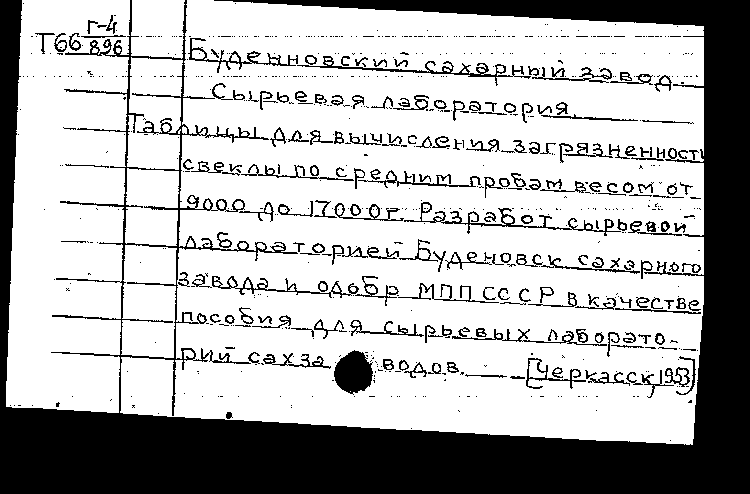 Т66 г-4/896
Буденновский сахарный завод.
Сырьевая лаборатория.
Таблицы для вычисления загрязненности
свеклы по средним пробам весом от
9000 до 17000г. Разработ сырьевой
лабораторией Буденовск сахарного
завода и одобр МПП СССР в качестве
пособия для сырьевых лаборато-
рий сахза водов. [Черкасск, 1953]